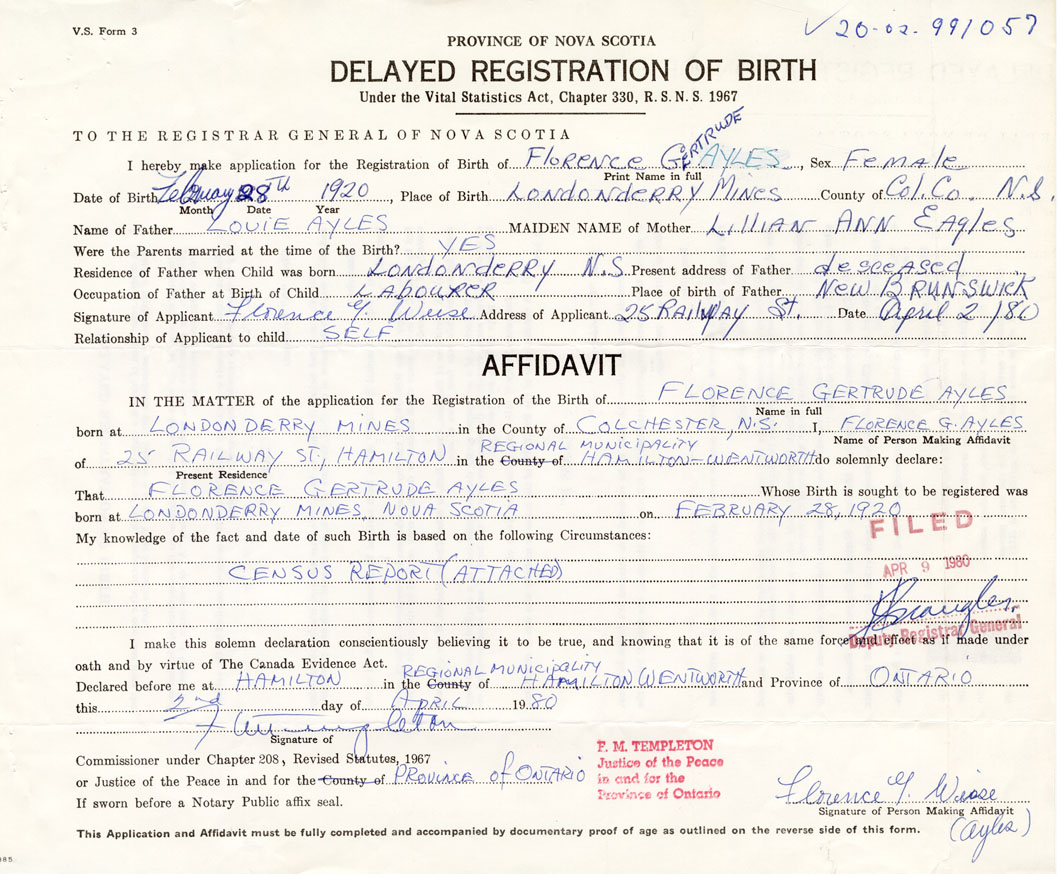 V.S. Form 3
20-02-99/057
PROVINCE OF NOVA SCOTIA
DELAYED REGISTRATION OF BIRTH
Under the Vital Statistics Act, Chapter 330, R. S. N. S. 1967
TO THE REGISTRAR GENERAL OF NOVA SCOTIA
I hereby make application for the Registration of Birth of FLORENCE GERTRUDE AYLES, Sex FEMALE
Print Name in full
Date of Birth February 28th 1920, Place of Birth LONDONDERRY MINES County of Col. Co. N.S.
Month Date Year
Name of Father LOUIE AYLES MAIDEN NAME of Mother LILLIAN ANN EAGLES
Were the Parents married at the time of the Birth? YES
Residence of Father when Child was born LONDONDERRY N.S. Present address of Father deseased
Occupation of Father at Birth of Child LABOURER Place of birth of Father NEW BRUNSWICK
Signature of Applicant Florence G. Weise Address of Applicant 25 RAILWAY St. Date April 2/80
Relationship of Applicant to child SELF
AFFIDAVIT
IN THE MATTER of the application for the Registration of the Birth of FLORENCE GERTRUDE AYLES
Name in full
born at LONDONDERRY MINES in the County of COLCHESTER, N.S. I, FLORENCE G. AYLES
Name of Person Making Affidavit
REGIONAL MUNICIPALITY
of 25 RAILWAY ST., HAMILTON in the County of HAMILTON-WENTWORTH do solemnly declare:
Present Residence
That FLORENCE GERTRUDE AYLES Whose Birth is sought to be registered was
born at LONDONDERRY MINES, NOVA SCOTIA on FEBRUARY 28, 1920
FILED
My knowledge of the fact and date of such Birth is based on the following Circumstances:
CENSUS REPORT (ATTACHED)
APR 9 1980
Deputy Registrar General
I make this solemn declaration conscientiously believing it to be true, and knowing that it is of the same force and effect as if made under
oath and by virtue of The Canada Evidence Act.
REGIONAL MUNICIPALITY
Declared before me at HAMILTON in the County of HAMILTON WENTWORTH and Province of ONTARIO
this 2nd day of APRIL 1980
Signature of
Commissioner under Chapter 208, Revised Statutes, 1967
or Justice of the Peace in and for the County of PROVINCE of ONTARIO
If sworn before a Notary Public affix seal.
F. M. TEMPLETON
Justice of the Peace
in and for the
Province of Ontario
Florence G. Weise
Signature of Person Making Affidavit
(Ayles)
This Application and Affidavit must be fully completed and accompanied by documentary proof of age as outlined on the reverse side of this form.
985